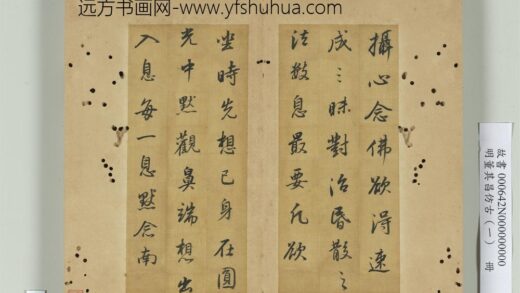 远方书画网-www.yfshuhua.com
攝心念佛欲得速
成三昧對治昏散之
法數息最要凡欲
坐時先想己身在圓
光中默觀鼻端想出
入息每一息默念南
故書000642N000000000
明董其昌仿古(一) 冊